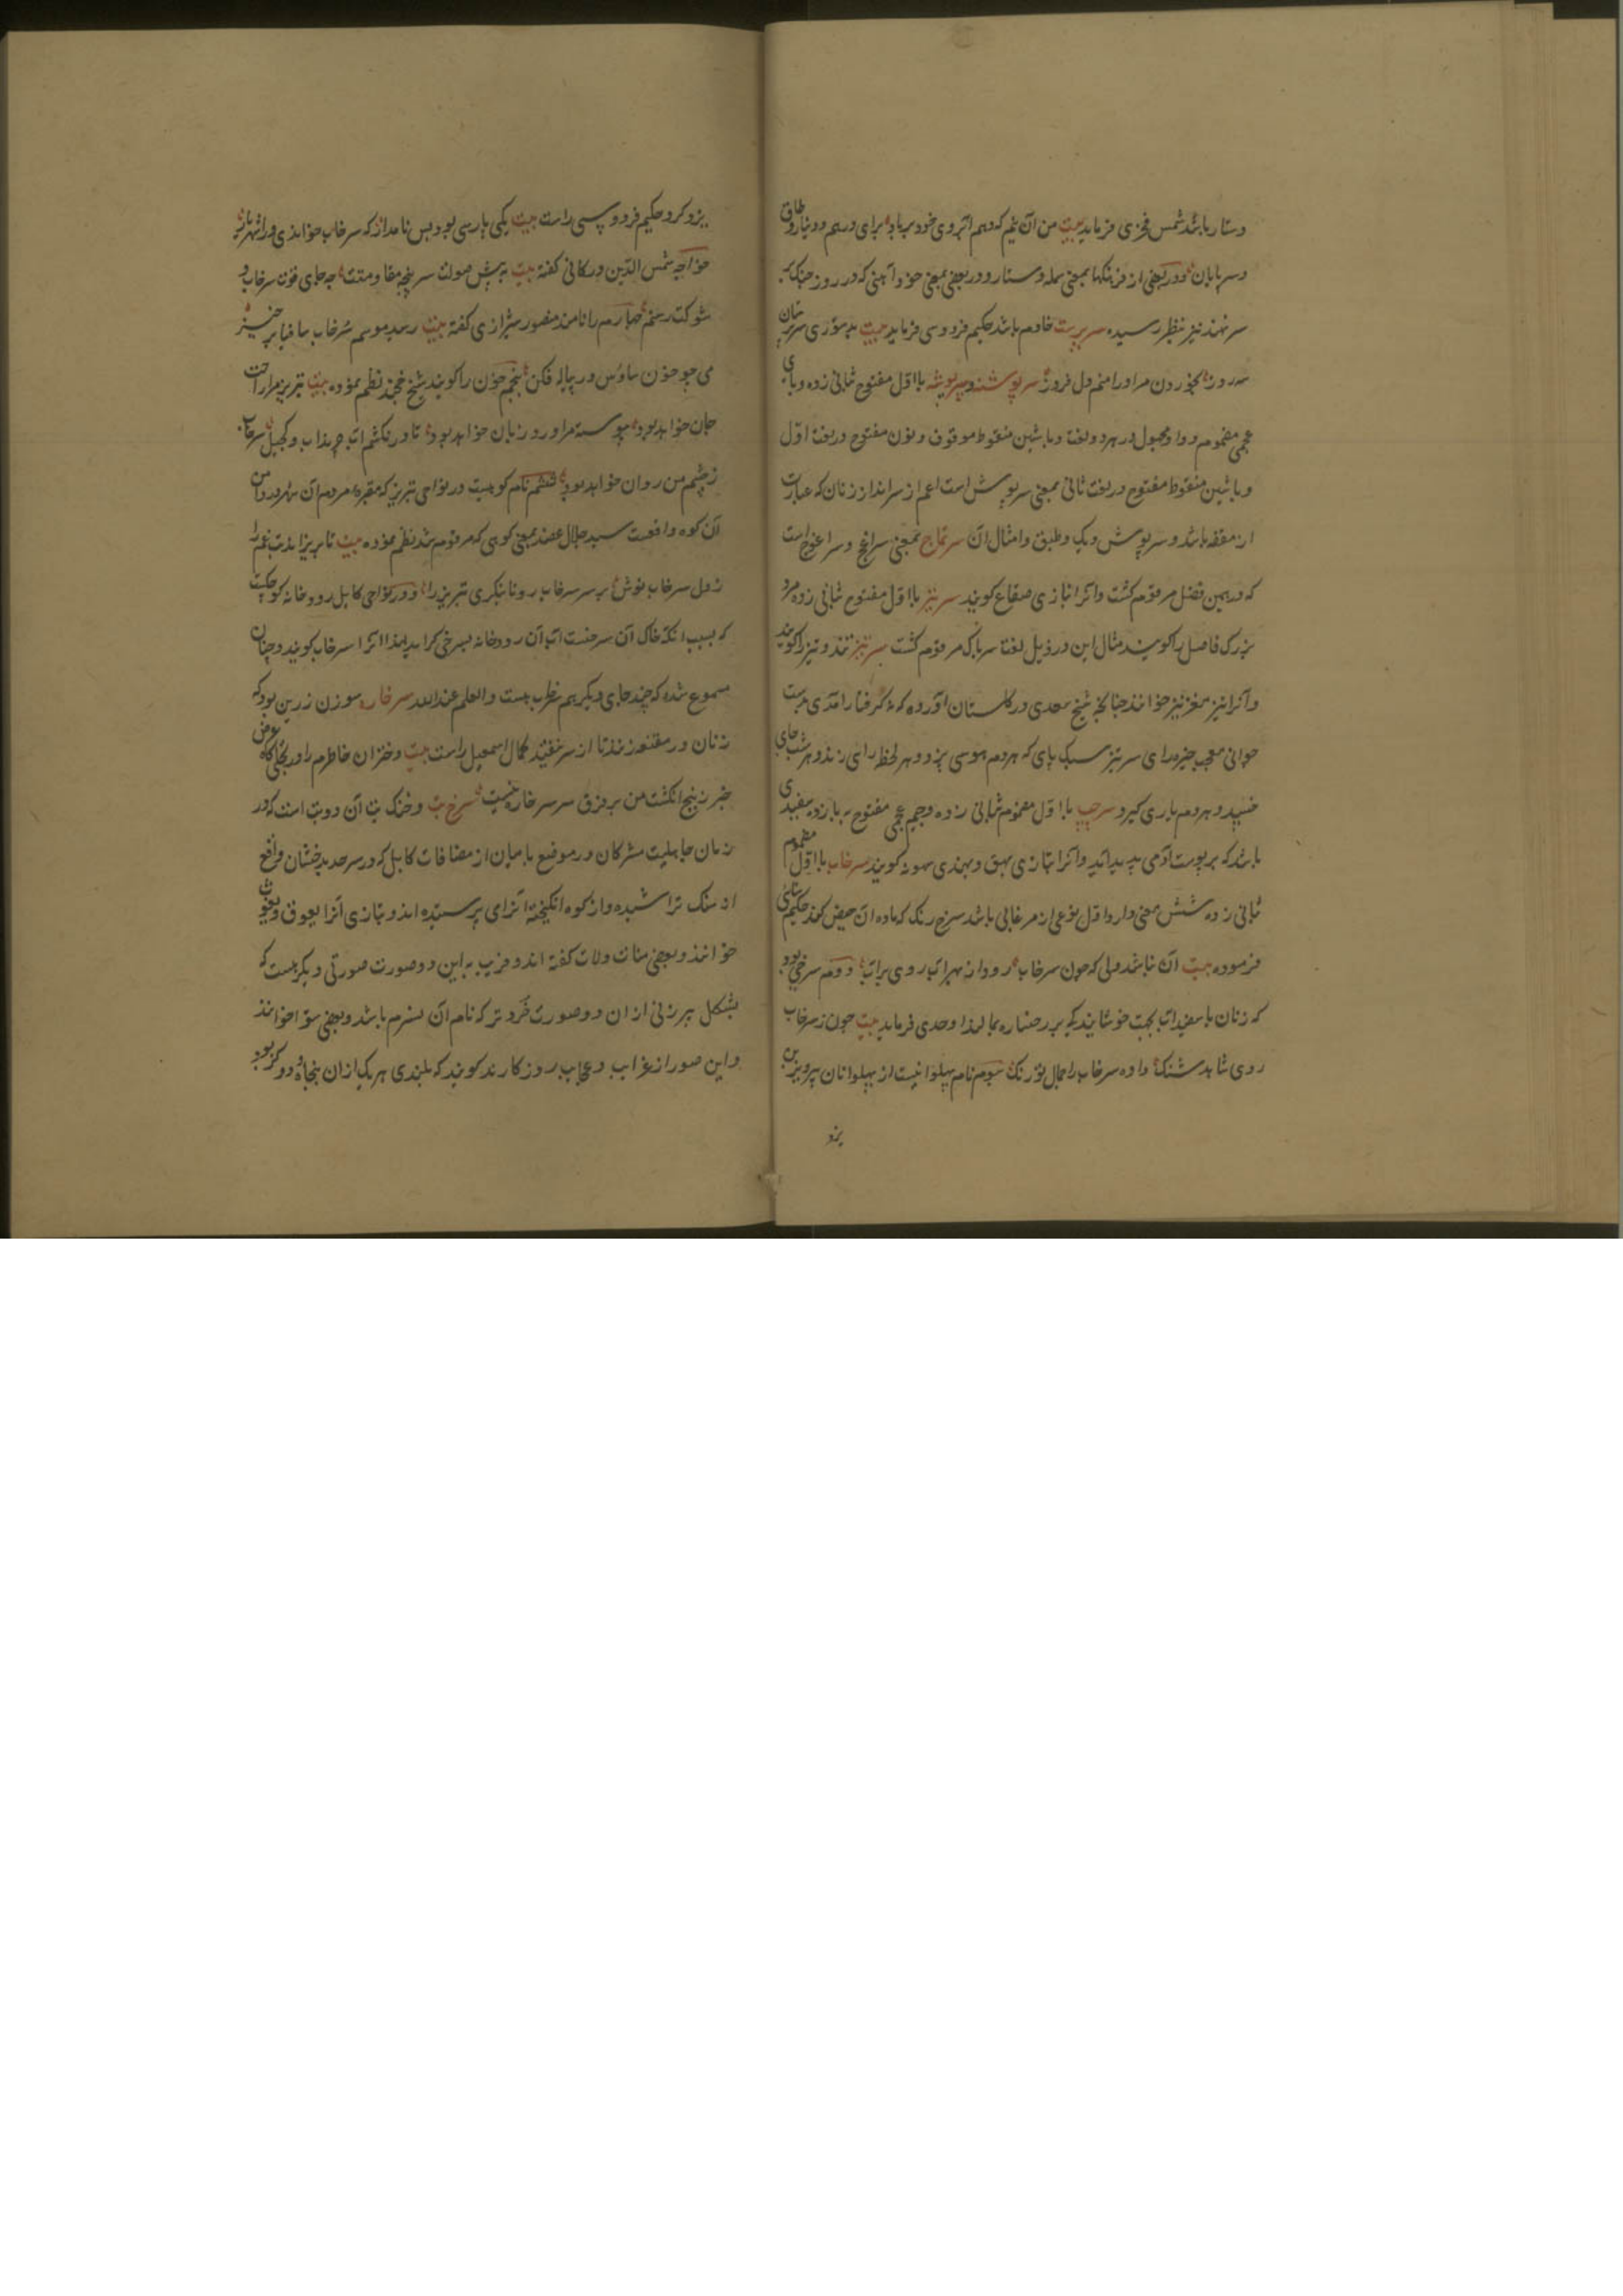 دستار باشد شمس فخری فرماید بیت من آن نیم که دهم آبروی خود بر باد برای درهم و دینار و طاق
و سرپایان و در بعضی از فرهنگها بمعنی عمامه و دستار و در بعضی بمعنی خود آهنی که در روز جنگ بر
سر نهند نیز بنظر رسیده سرپرست خادم باشد حکیم فردوسی فرماید بیت
سه روز بخوردن مر او را منم دل فروز سرپوشنه و سرپوشه با اول مفتوح بثانی زده و بای
عجمی مضموم و واو مجهول در هر دو لغت و با شین منقوط موقوف و نون مفتوح در لغت اول
و با شین منقوط مفتوح در لغت ثانی بمعنی سرپوش است اعم از سرانداز زنان که عبارت
از مقنعه باشد و سرپوش دیگ و طبق و امثال آن سرتاج بمعنی سراغج و سراغوج است
که در همین فصل مرقوم گشت و آنرا بتازی صقاع گویند با اول مفتوح بثانی زده مرد
بزرگ فاضل را گویند مثال این در ذیل لغت سرپاک مرقوم گشت سرتیز تند و تیز را گویند
و آنرا تیز مغز نیز خوانند چنانکه شیخ سعدی در گلستان آورده که نه گرفتار آمدی بدست
جوانی معجب خیره رای سرتیز سبک پای که هر دم هوسی پزد و هر لحظه رائی زند و هر شب جای
خسپد و هر دم یاری گیرد با اول مضموم بثانی زده و جیم عجمی مفتوح به با زده سفیدی
باشد که بر پوست آدمی پدید آید و آنرا بتازی بهق و بهندی گویند سرخاب با اول مضموم
ثانی زده شش معنی دارد اول نوعی از مرغابی باشد سرخ رنگ که ماده آن حیض کند حکیم
فرموده بیت آن نباشد ولی که چون سرخاب رود از بهر آب روی بر آب دوم سرخی بود
که زنان با سفیداب بجهت خوشایندگی بر رخساره بمالند اوحدی فرماید بیت چون ز سرخاب
روی شاهد شنگ داده سرخاب را جمال تو رنگ سوم نام پهلوانیست از پهلوانان پرویز بن
یزد
یزدکرد حکیم فردوسی راست بیت یکی پارسی بود بس نامدار که سرخاب خواندی ورا شهریار
خواجه شمس الدین درکانی گفته بیت به پیش صولت سرپنجه مقاومتت چه جای قوت سرخاب و
شوکت رستم چهارم را نامند منصور شیرازی گفته بیت رسید موسم سرخاب ساقیا برخیز
می چو خون سیاوش در پیاله فکن پنجم خون را گویند شیخ خجند نظم نموده بیت تبریز مرا راحت
جان خواهد بود پیوسته مرا ورد زبان خواهد بود تا در نکشم آب و کجیل سرخاب
ز چشم من روان خواهد بود ششم نام کوهیست در نواحی تبریز که مقبره مردم آن شهر در دامن
آن کوه واقعست سید جلال عضد بمعنی کوهی که مرقوم شد نظم نموده بیت
ز دل سرخاب نوش بر سر سرخاب رو تا بنگری تبریز را و در نواحی کابل رودخانه کوچکیست
که بسبب آنکه خاک آن سرخست آب آن رودخانه بسرخی گراید لهذا آنرا سرخاب گویند و چنان
مسموع شده که چند جای دیگر هم سرخاب هست و العلم عند الله سرخاره سوزن زرین بود که
زنان در مقنعه زنند تا از سر نیفتد کمال اسمعیل راست بیت دختران خاطرم را در تجلی گاه عرض
جز ز پنج انگشت من بر فرق سر سرخاره نیست سرخ بت و خنک بت آن دو بت است که در
زمان جاهلیت مشرکان در موضع بامیان از مضافات کابل که در سرحد بدخشان واقع
از سنگ تراشیده و از کوه انگیخته آنرا می پرستیده اند و بتازی آنرا یعوق و یغوث
خوانند و بعضی منات و لات گفته اند و قریب به این دو صورت صورتی دیگر هست که
بشکل پیر زنی از آن دو صورت خردتر که نام آن نسرم باشد و بعضی خوانند
و این صور از غرایب و عجایب روزگارند گویند که بلندی هر یک از آن پنجاه و دو گز بود